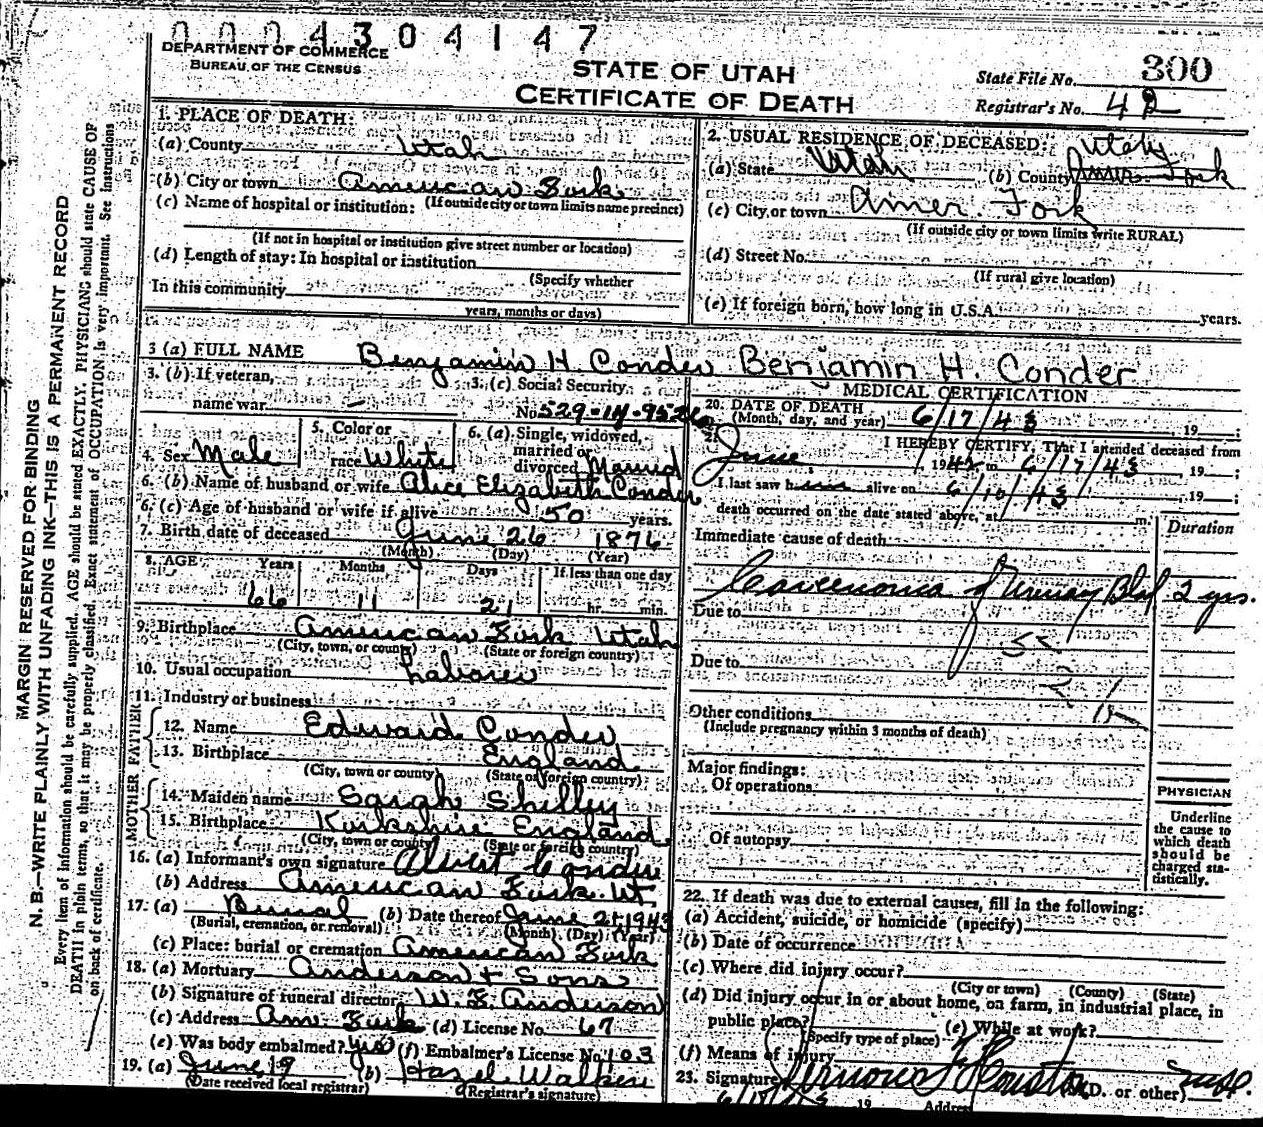 0004304147
DEPARTMENT OF COMMERCE
BUREAU OF THE CENSUS
STATE OF UTAH
CERTIFICATE OF DEATH
State File No. 300
Registrar's No. 42
MARGIN RESERVED FOR BINDING
N. B.—WRITE PLAINLY WITH UNFADING INK—THIS IS A PERMANENT RECORD
Every item of information should be carefully supplied. AGE should be stated EXACTLY. PHYSICIANS should state CAUSE OF
DEATH in plain terms, so that it may be properly classified. Exact statement of OCCUPATION is very important. See instructions
on back of certificate.
1. PLACE OF DEATH:
(a) County Utah
(b) City or town American Fork
(c) Name of hospital or institution: (If outside city or town limits name precinct)
(If not in hospital or institution give street number or location)
(d) Length of stay: In hospital or institution
(Specify whether
In this community
years, months or days)
2. USUAL RESIDENCE OF DECEASED:
(a) State Utah (b) County Utah Amer. Fork
(c) City or town Amer. Fork
(If outside city or town limits write RURAL)
(d) Street No.
(If rural give location)
(e) If foreign born, how long in U.S.A. years.
3 (a) FULL NAME Benjamin H. Conder Benjamin H. Conder
3. (b) If veteran,
name war –
3. (c) Social Security
No. 529-14-952
4. Sex Male
5. Color or
race White
6. (a) Single, widowed,
married or
divorced Married
6. (b) Name of husband or wife Alice Elizabeth Conder
6. (c) Age of husband or wife if alive 50 years.
7. Birth date of deceased June 26 1876
(Month) (Day) (Year)
8. AGE Years Months Days If less than one day
66 11 21 hr. min.
9. Birthplace American Fork Utah
(City, town, or county) (State or foreign country)
10. Usual occupation Laborer
11. Industry or business
FATHER
12. Name Edward Conder
13. Birthplace England
(City, town or county) (State or foreign country)
MOTHER
14. Maiden name Sarah Shelley
15. Birthplace Yorkshire England
(City, town or county) (State or foreign country)
16. (a) Informant's own signature Albert Conder
(b) Address American Fork Ut
17. (a) Burial (b) Date thereof June 21, 1943
(Burial, cremation, or removal) (Month) (Day) (Year)
(c) Place: burial or cremation American Fork
18. (a) Mortuary Anderson + Sons
(b) Signature of funeral director W. E. Anderson
(c) Address Am. Fork (d) License No. 67
(e) Was body embalmed? yes (f) Embalmer's License No. 103
19. (a) June 19 (b) Hazel Walker
(Date received local registrar) (Registrar's signature)
MEDICAL CERTIFICATION
20. DATE OF DEATH
(Month, day, and year) 6/17/43 19 ;
21. I HEREBY CERTIFY, That I attended deceased from
June, 1942 6/17/43 19 ;
I last saw him alive on 6/10/43 19 ;
death occurred on the date stated above, at m.
Immediate cause of death
Duration
Carcenoma of Urinary Blad 2 yrs.
Due to
Due to
Other conditions
(Include pregnancy within 3 months of death)
Major findings:
Of operations
Of autopsy
PHYSICIAN
Underline
the cause to
which death
should be
charged sta-
tistically.
22. If death was due to external causes, fill in the following:
(a) Accident, suicide, or homicide (specify)
(b) Date of occurrence
(c) Where did injury occur?
(City or town) (County) (State)
(d) Did injury occur in or about home, on farm, in industrial place, in
public place?
(Specify type of place) (e) While at work?
(f) Means of injury
23. Signature Vernon F. Houston (M.D. or other)
19 Address